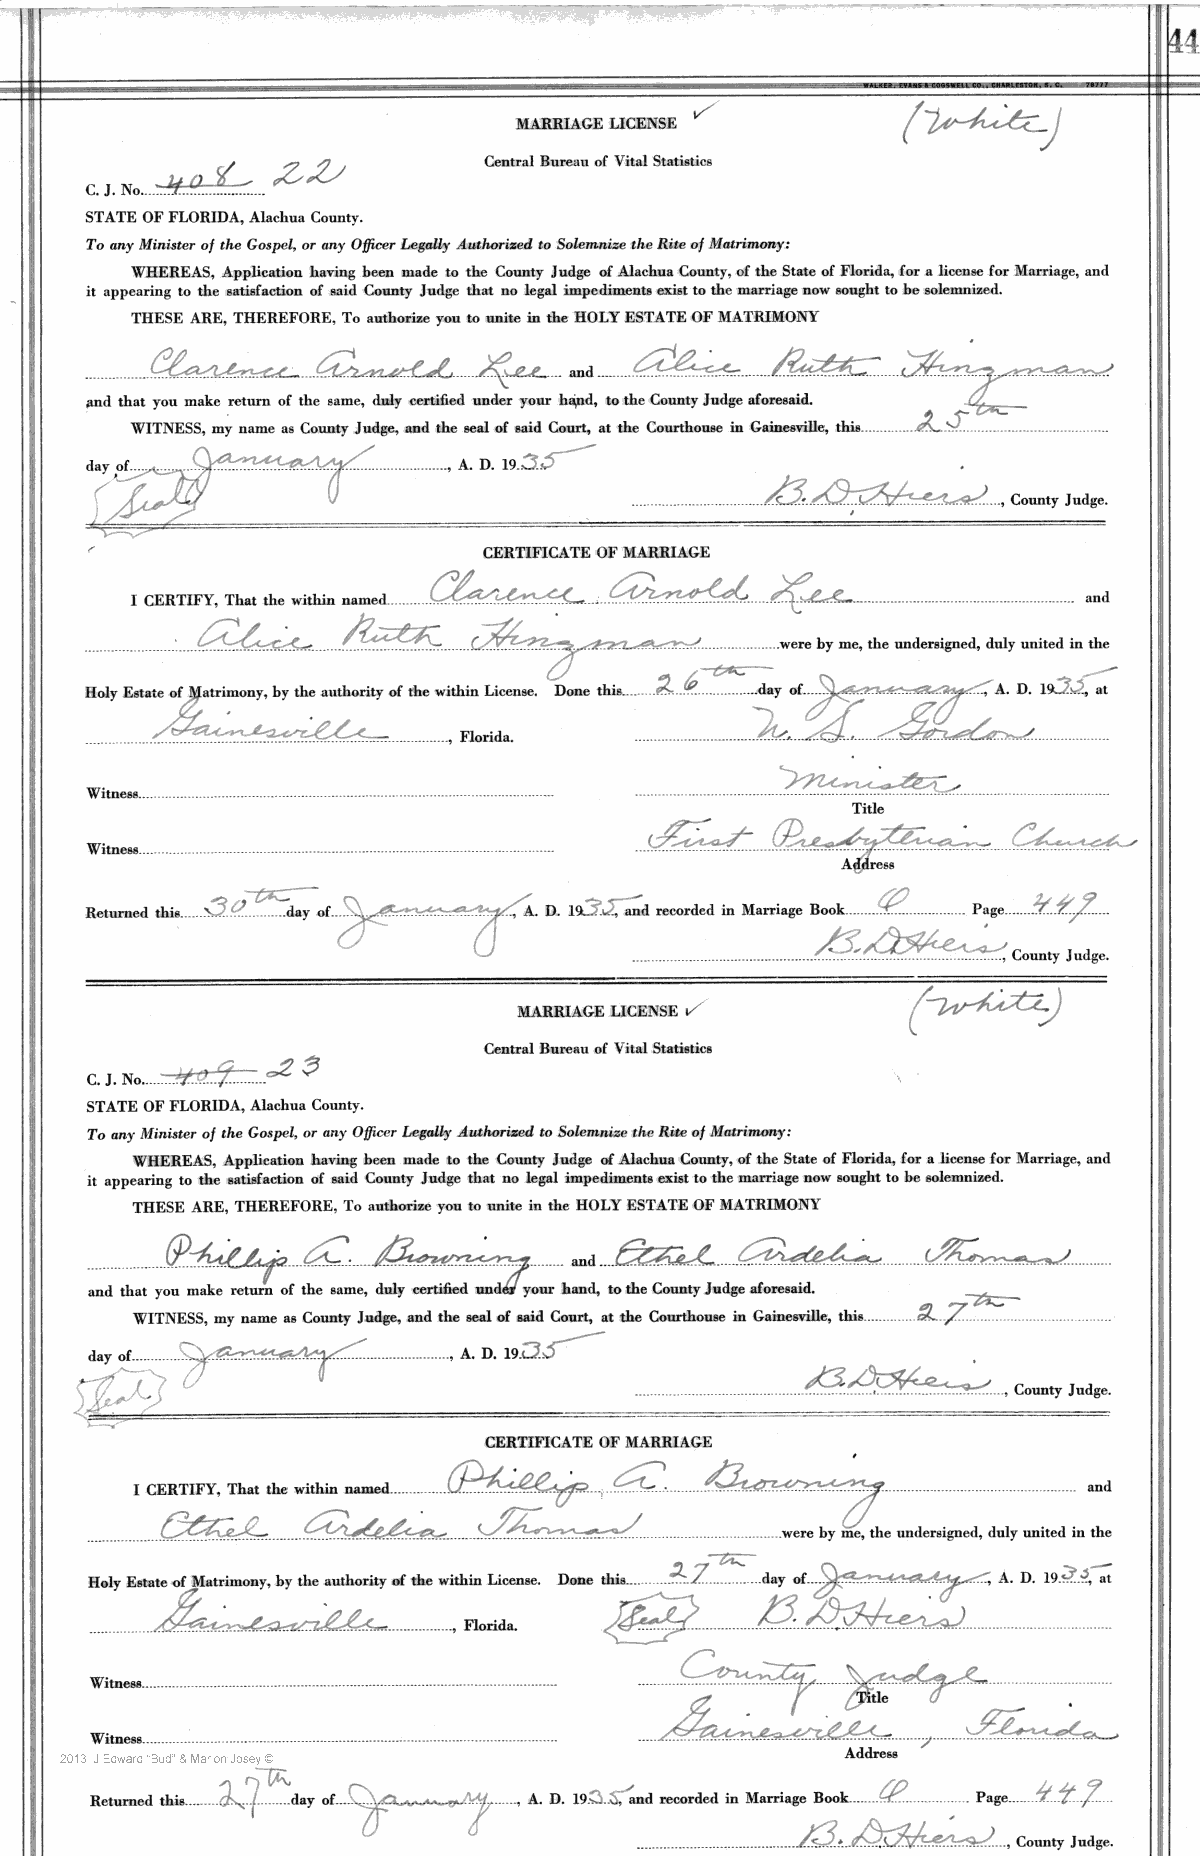 44
WALKER, EVANS & COGSWELL CO., CHARLESTON, S. C. 78777
MARRIAGE LICENSE ✓ (White)
Central Bureau of Vital Statistics
C. J. No. 408 22
STATE OF FLORIDA, Alachua County.
To any Minister of the Gospel, or any Officer Legally Authorized to Solemnize the Rite of Matrimony:
WHEREAS, Application having been made to the County Judge of Alachua County, of the State of Florida, for a license for Marriage, and
it appearing to the satisfaction of said County Judge that no legal impediments exist to the marriage now sought to be solemnized.
THESE ARE, THEREFORE, To authorize you to unite in the HOLY ESTATE OF MATRIMONY
Clarence Arnold Lee and Alice Ruth Hingman
and that you make return of the same, duly certified under your hand, to the County Judge aforesaid.
WITNESS, my name as County Judge, and the seal of said Court, at the Courthouse in Gainesville, this 25th
day of January, A. D. 1935
(Seal) B. D. Hiers, County Judge.
CERTIFICATE OF MARRIAGE
I CERTIFY, That the within named Clarence Arnold Lee and
Alice Ruth Hingman were by me, the undersigned, duly united in the
Holy Estate of Matrimony, by the authority of the within License. Done this 26th day of January, A. D. 1935, at
Gainesville, Florida. U. S. Gordon
Witness Minister
Title
Witness First Presbyterian Church
Address
Returned this 30th day of January, A. D. 1935, and recorded in Marriage Book Q Page 449
B. D. Hiers, County Judge.
MARRIAGE LICENSE ✓ (White)
Central Bureau of Vital Statistics
C. J. No. 409 23
STATE OF FLORIDA, Alachua County.
To any Minister of the Gospel, or any Officer Legally Authorized to Solemnize the Rite of Matrimony:
WHEREAS, Application having been made to the County Judge of Alachua County, of the State of Florida, for a license for Marriage, and
it appearing to the satisfaction of said County Judge that no legal impediments exist to the marriage now sought to be solemnized.
THESE ARE, THEREFORE, To authorize you to unite in the HOLY ESTATE OF MATRIMONY
Phillip A. Browning and Ethel Ardelia Thomas
and that you make return of the same, duly certified under your hand, to the County Judge aforesaid.
WITNESS, my name as County Judge, and the seal of said Court, at the Courthouse in Gainesville, this 27th
day of January, A. D. 1935
(Seal) B. D. Hiers, County Judge.
CERTIFICATE OF MARRIAGE
I CERTIFY, That the within named Phillip A. Browning and
Ethel Ardelia Thomas were by me, the undersigned, duly united in the
Holy Estate of Matrimony, by the authority of the within License. Done this 27th day of January, A. D. 1935, at
Gainesville, Florida. (Seal) B. D. Hiers
Witness County Judge
Title
Witness Gainesville, Florida
2013 J Edward "Bud" & Marion Josey © Address
Returned this 27th day of January, A. D. 1935, and recorded in Marriage Book Q Page 449
B. D. Hiers, County Judge.